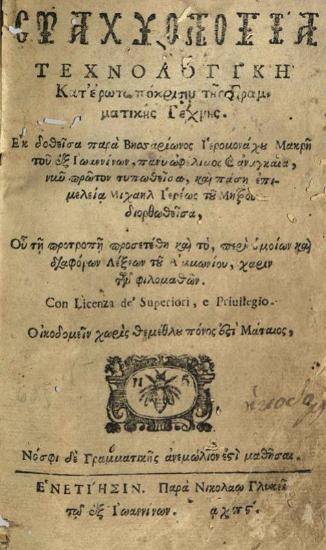 ΣΤΑΧΥΟΛΟΓΙΑ
ΤΕΧΝΟΛΟΓΙΚΗ
Κατ' ἐρωταπόκρισιν τῆς Γραμ-
ματικῆς Τέχνης.
Ἐκδοθεῖσα παρὰ Βησσαρίωνος Ἱερομονάχου Μακρῆ
τοῦ ἐξ Ἰωαννίνων, πάνυ ὠφέλιμος καὶ ἀναγκαία,
νῦν πρῶτον τυπωθεῖσα, καὶ πάσῃ ἐπι-
μελείᾳ Μιχαὴλ Ἱερέως τοῦ
διορθωθεῖσα,
Οὗ τῇ προτροπῇ προσετέθη καὶ τὸ, περὶ ὁμοίων καὶ
διαφόρων λέξεων τοῦ Ἀμμωνίου, χάριν
τῶν φιλομαθῶν.
Con Licenza de' Superiori, e Priuilegio.
Οἰκοδομεῖν χωρὶς θεμέθλου πόνος ἐστὶ μάταιος,
Ν Γ
Νόσφι δὲ Γραμματικῆς ἀνεμώλιόν ἐστι μαθῆσαι.
ἘΝΕΤΙΉΣΙΝ. Παρὰ Νικολάῳ Γλυκεῖ
τῷ ἐξ Ἰωαννίνων. αχπς.